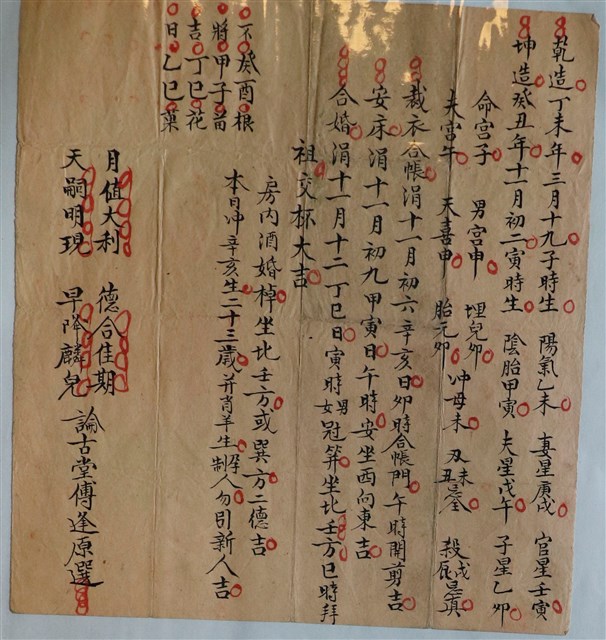 乾造丁未年三月十九子時生　陽氣乙未　妻星庚戌　官星壬寅
坤造癸丑年十一月初二寅時生　陰胎甲寅　夫星戊午　子星乙卯
命宮子　男宮申　埋兒卯　冲母未　刃未丑墓　殺戌辰忌眞
夫宮午　天喜申　胎元卯
裁衣合帳涓十一月初六辛亥日卯時合帳門午時開剪吉
安床涓十一月初九甲寅日午時安坐西向東吉
合婚涓十一月十二丁巳日寅時男女冠筓坐北壬方巳時拜
祖交杯大吉
房內酒婚棹坐北壬方或巽方二德吉
本日冲辛亥生二十三歲并肖羊生人勿引新人吉
不癸酉根
將甲子苗
吉丁巳花
日乙巳菓
月值大利　德合佳期
天嗣明現　早降麟兒
論古堂傅逢原選